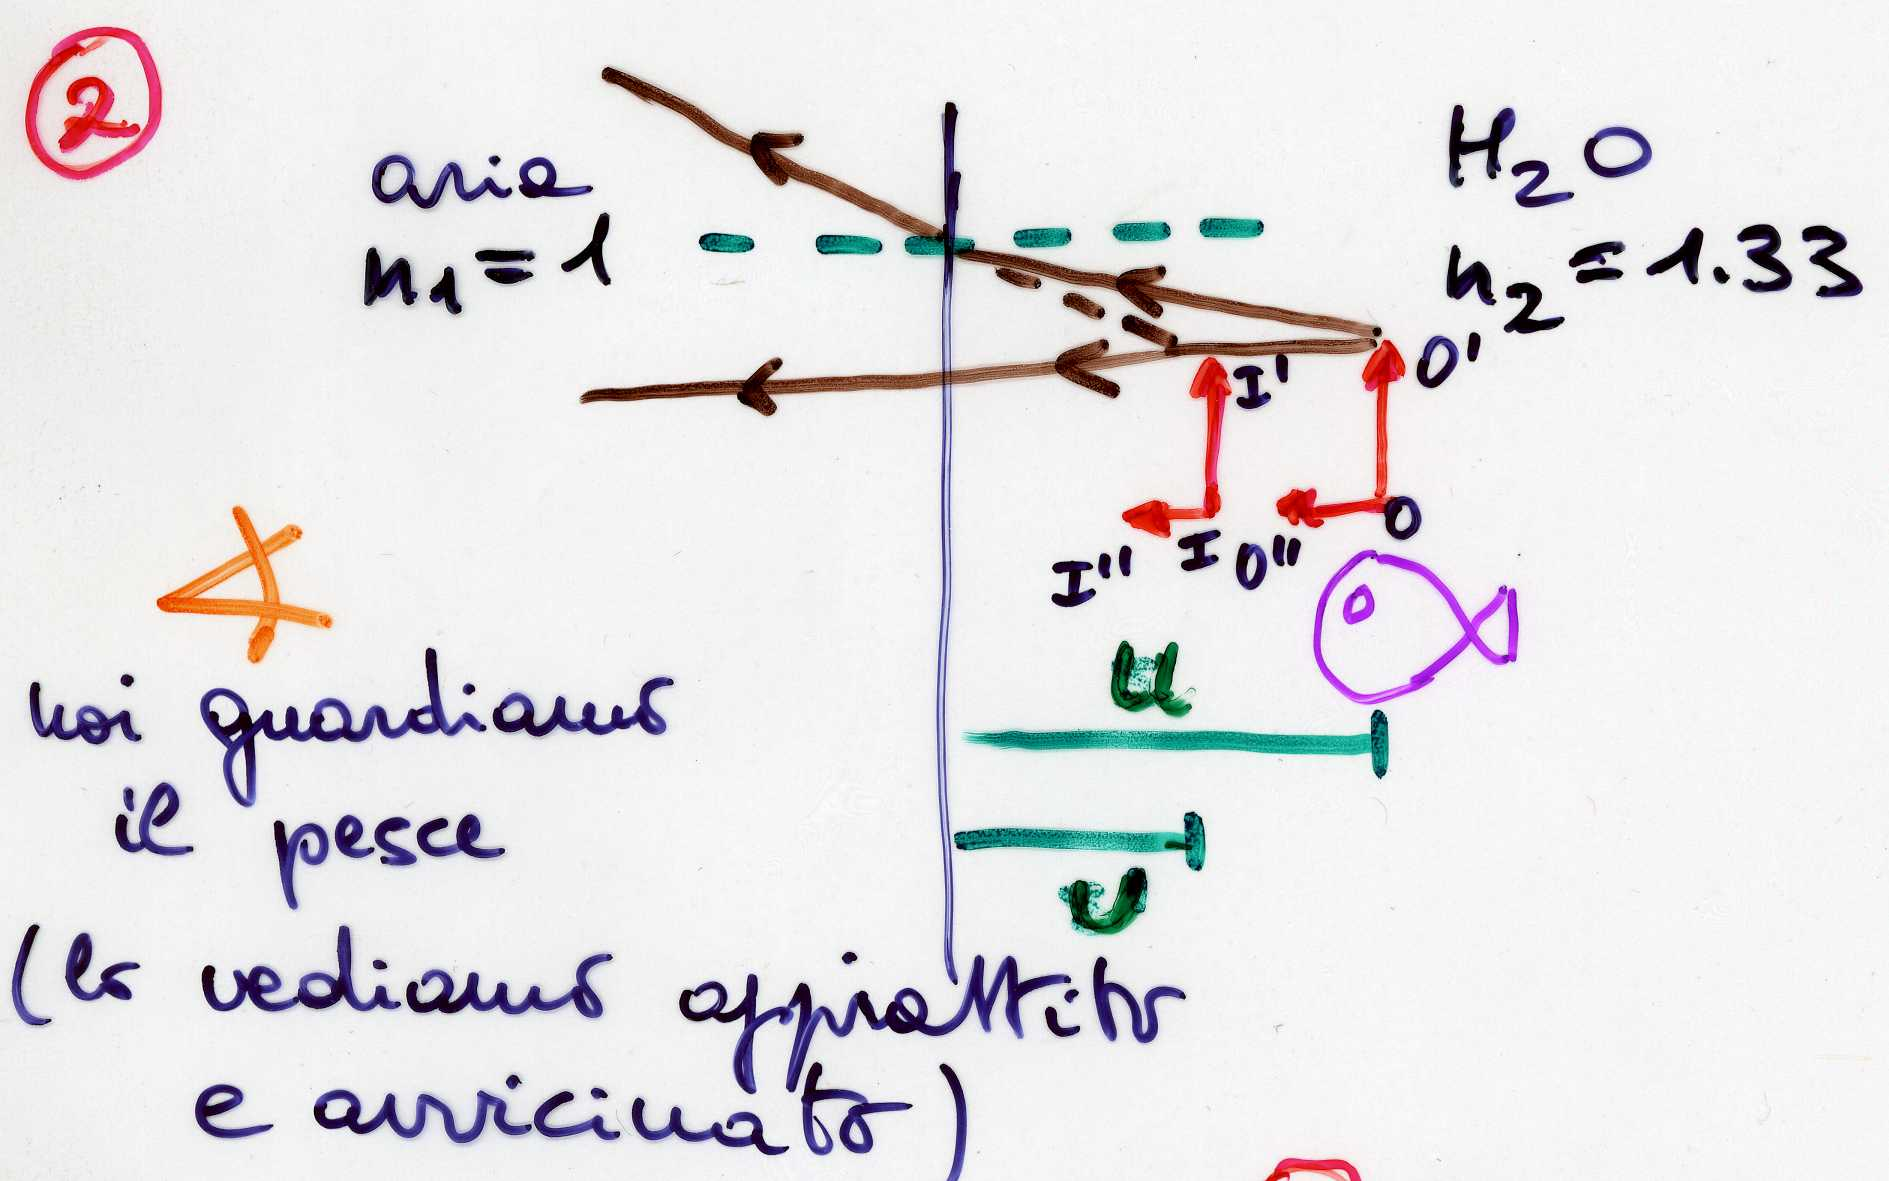 2
aria
n₁ = 1
H₂O
n₂ = 1.33
O'
I'
I" I O" O
u
v
noi guardiamo
il pesce
(lo vediamo appiattito
e avvicinato)